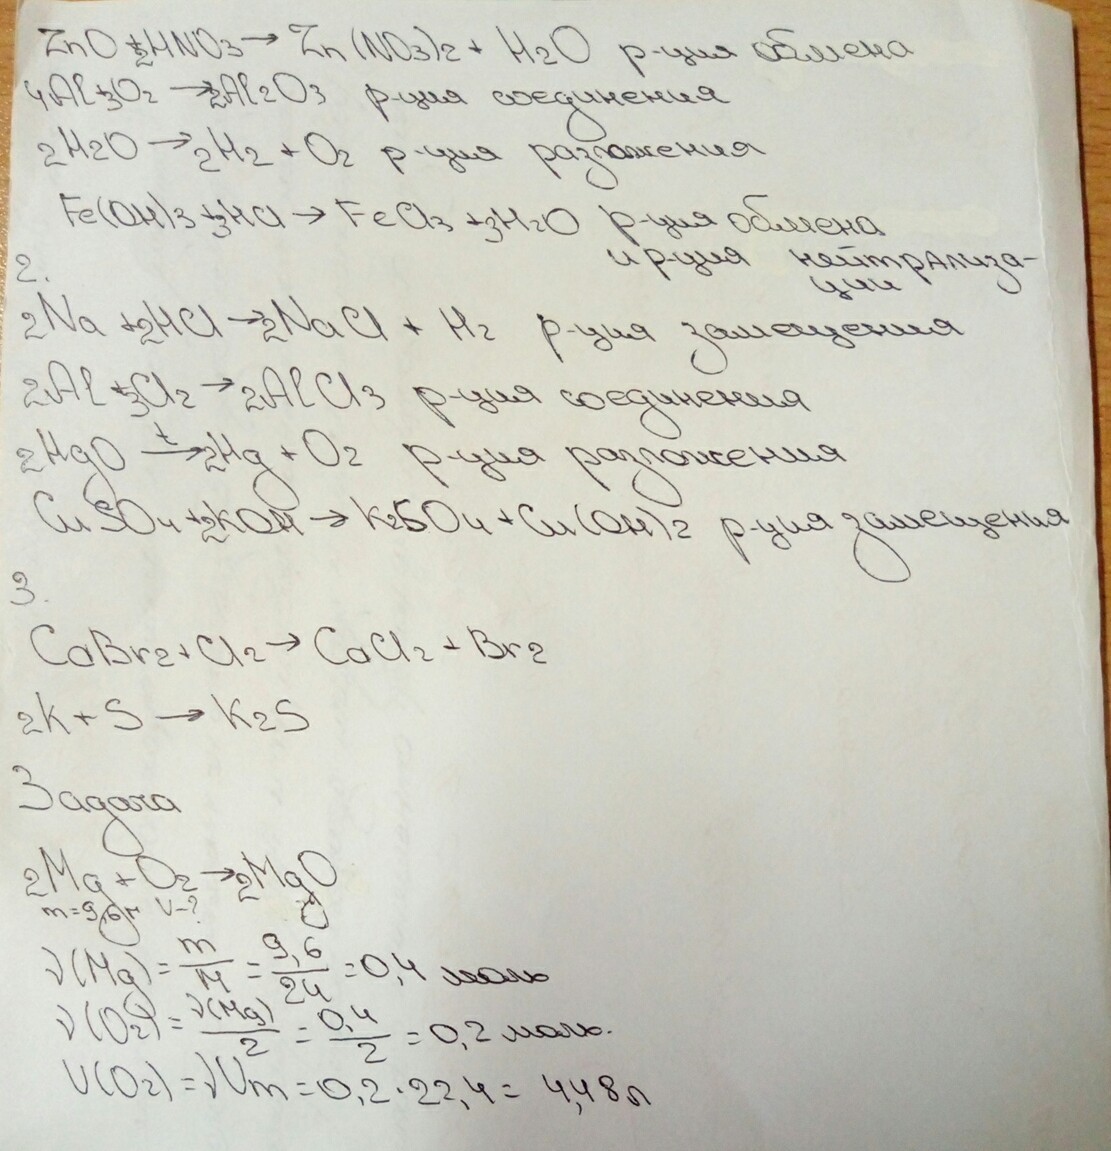 ZnO + 2HNO3 → Zn(NO3)2 + H2O р-ция обмена
4Al + 3O2 → 2Al2O3 р-ция соединения
2H2O → 2H2 + O2 р-ция разложения
Fe(OH)3 + 3HCl → FeCl3 + 3H2O р-ция обмена
и р-ция нейтрализа-
ции
2.
2Na + 2HCl → 2NaCl + H2 р-ция замещения
2Al + 3Cl2 → 2AlCl3 р-ция соединения
2HgO t→ 2Hg + O2 р-ция разложения
CuSO4 + 2KOH → K2SO4 + Cu(OH)2 р-ция замещения
3.
CaBr2 + Cl2 → CaCl2 + Br2
2K + S → K2S
Задача
2Mg + O2 → 2MgO
m=9,6г V-?
ν(Mg) = m/M = 9,6/24 = 0,4 моль
ν(O2) = ν(Mg)/2 = 0,4/2 = 0,2 моль.
V(O2) = νVm = 0,2·22,4 = 4,48л